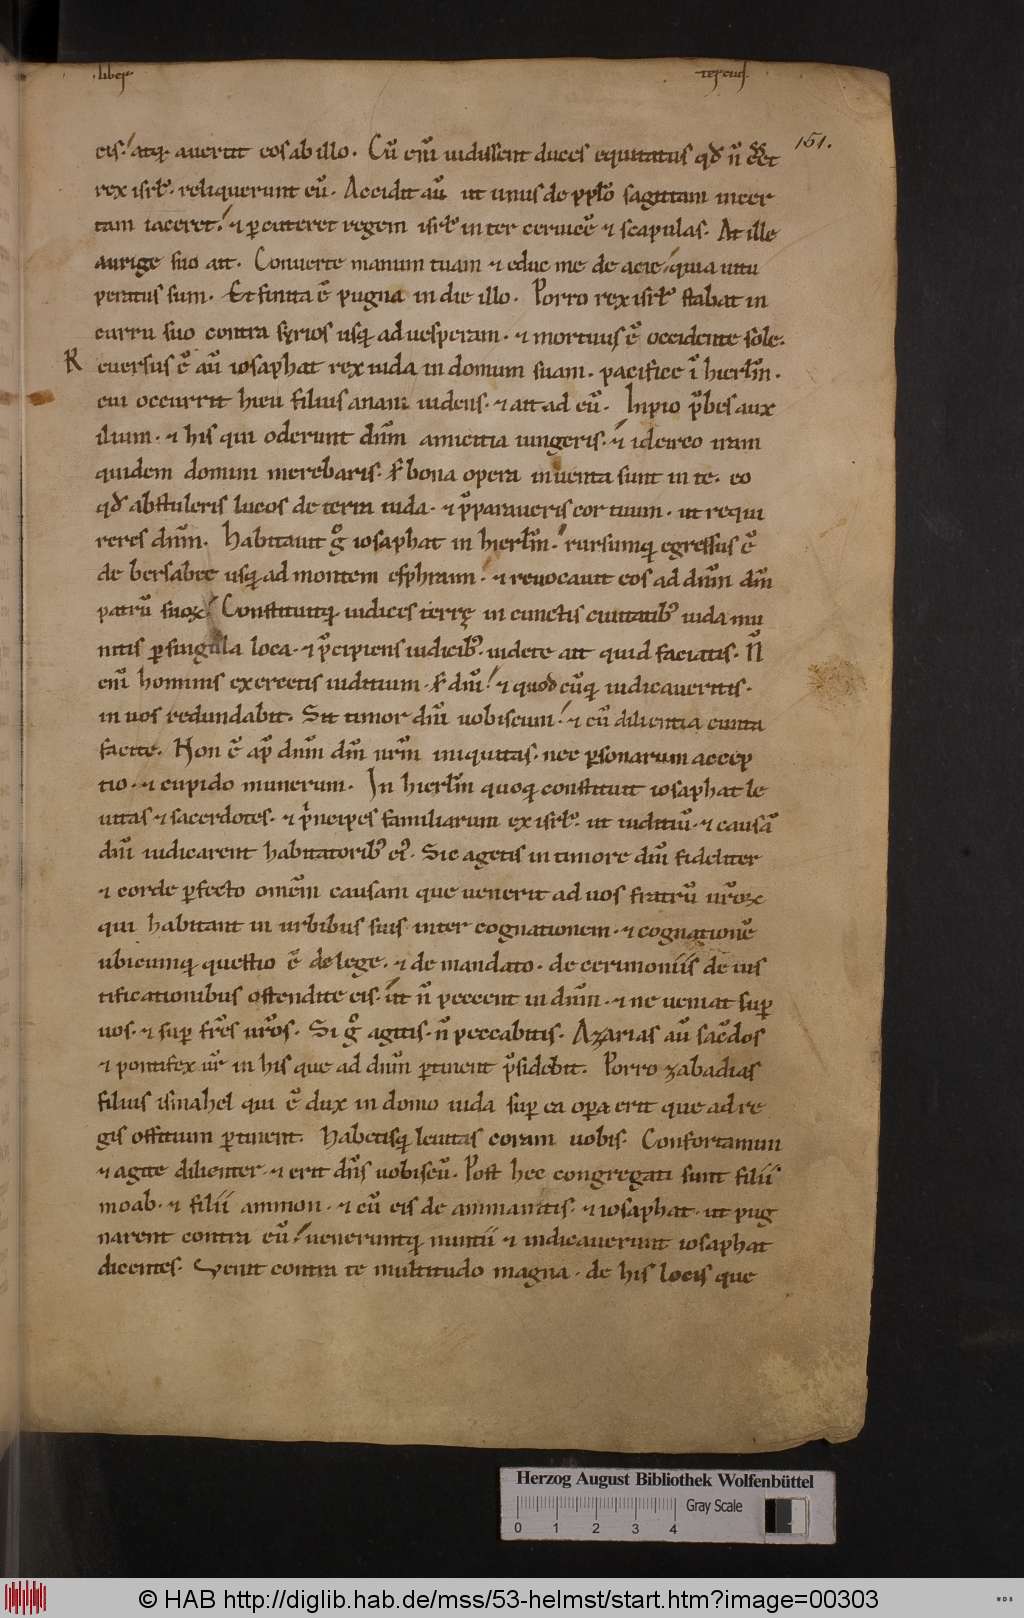 .liber terciuſ.
151.
eis. atq; auertit eos ab illo. Cū enī uidiſſent duces equitatus qđ n̄ eēt
rex iſrl̄. reliquerunt eū. Accidit aū ut unus de pplo ſagittam incer
tam iaceret. ⁊ ꝑcuteret regem iſrl̄ inter ceruicē ⁊ ſcapulas. At ille
aurige ſuo ait. Conuerte manum tuam ⁊ educ me de acie. quia uulu
neratus ſum. Et finita ē pugna in die illo. Porro rex iſrl̄ ſtabat in
curru ſuo contra ſyrios uſq; ad ueſperam. ⁊ mortuus ē occidente ſole.
R euerſus ē aū ioſaphat rex iuda in domum ſuam. pacifice ī hierl̄m.
cui occurrit hieu filius anani uidens. ⁊ ait ad eū. Inpio p̄bes aux
ilium. ⁊ his qui oderunt dn̄m amicitia iungeris. ⁊ idcirco iram
quidem domini merebaris. ſ; bona opera inuenta ſunt in te. eo
qđ abſtuleris lucos de terra iuda. ⁊ p̄paraueris cor tuum. ut requi
reres dn̄m. Habitauit g° ioſaphat in hierl̄m. rurſumq; egreſſus ē
de berſabee uſq; ad montem efphraim. ⁊ reuocauit eos ad dn̄m dm̄
patrū ſuoꝝ. Conſtituitq; iudices terrę in cunctis ciuitatib; iuda mu
nitis ꝑ ſingula loca. ⁊ p̄cipiens iudicib;. uidete ait quid faciatis. N̄
enī hominis exercetis iuditium. ſ; dn̄i. ⁊ quodcūq; iudicaueritis.
in uos redundabit. Sit timor dn̄i uobiſcum. ⁊ cū dilientia cunta
facite. Non ē ap̄ dn̄m dm̄ nr̄m iniquitas. nec ꝑſonarum accep
tio. ⁊ cupido munerum. In hierl̄m quoq; conſtituit ioſaphat le
uitas ⁊ ſacerdotes. ⁊ p̄ncipes familiarum ex iſrl̄. ut iuditiū. ⁊ cauſā
dn̄i iudicarent habitatorib; ei;. Sic agetis in timore dn̄i fideliter
⁊ corde ꝑfecto omēm cauſam que uenerit ad uos fratrū ur̄oꝝ
qui habitant in urbibus ſuis inter cognationem. ⁊ cognationē
ubicumq; queſtio ē de lege. ⁊ de mandato. de cerimoniis de ius
tificationibus oſtendite eis. ut n̄ peccent in dn̄m. ⁊ ne ueniat ſuꝑ
uos. ⁊ ſuꝑ fr̄es ur̄os. Si g° agitis. n̄ peccabitis. Azarias aū ſac̄dos
⁊ pontifex ur̄ in his que ad dn̄m ꝑtinent p̄ſidebit. Porro zabadias
filius iſmahel qui ē dux in domo iuda ſuꝑ ea oꝑa erit que ad re
gis offitium ꝑtinent. Habetiſq; leuitas coram uobis. Confortamini
⁊ agite dilienter. ⁊ erit dn̄s uobiſcū. Poſt hec congregati ſunt filii
moab. ⁊ filii ammon. ⁊ cū eis de ammanitis. ⁊ ioſaphat. ut pug
narent contra eū. ueneruntq; nuntii ⁊ indicauerunt ioſaphat
dicentes. Venit contra te multitudo magna. de his locis que
Herzog August Bibliothek Wolfenbüttel
Gray Scale
0 1 2 3 4
© HAB http://diglib.hab.de/mss/53-helmst/start.htm?image=00303